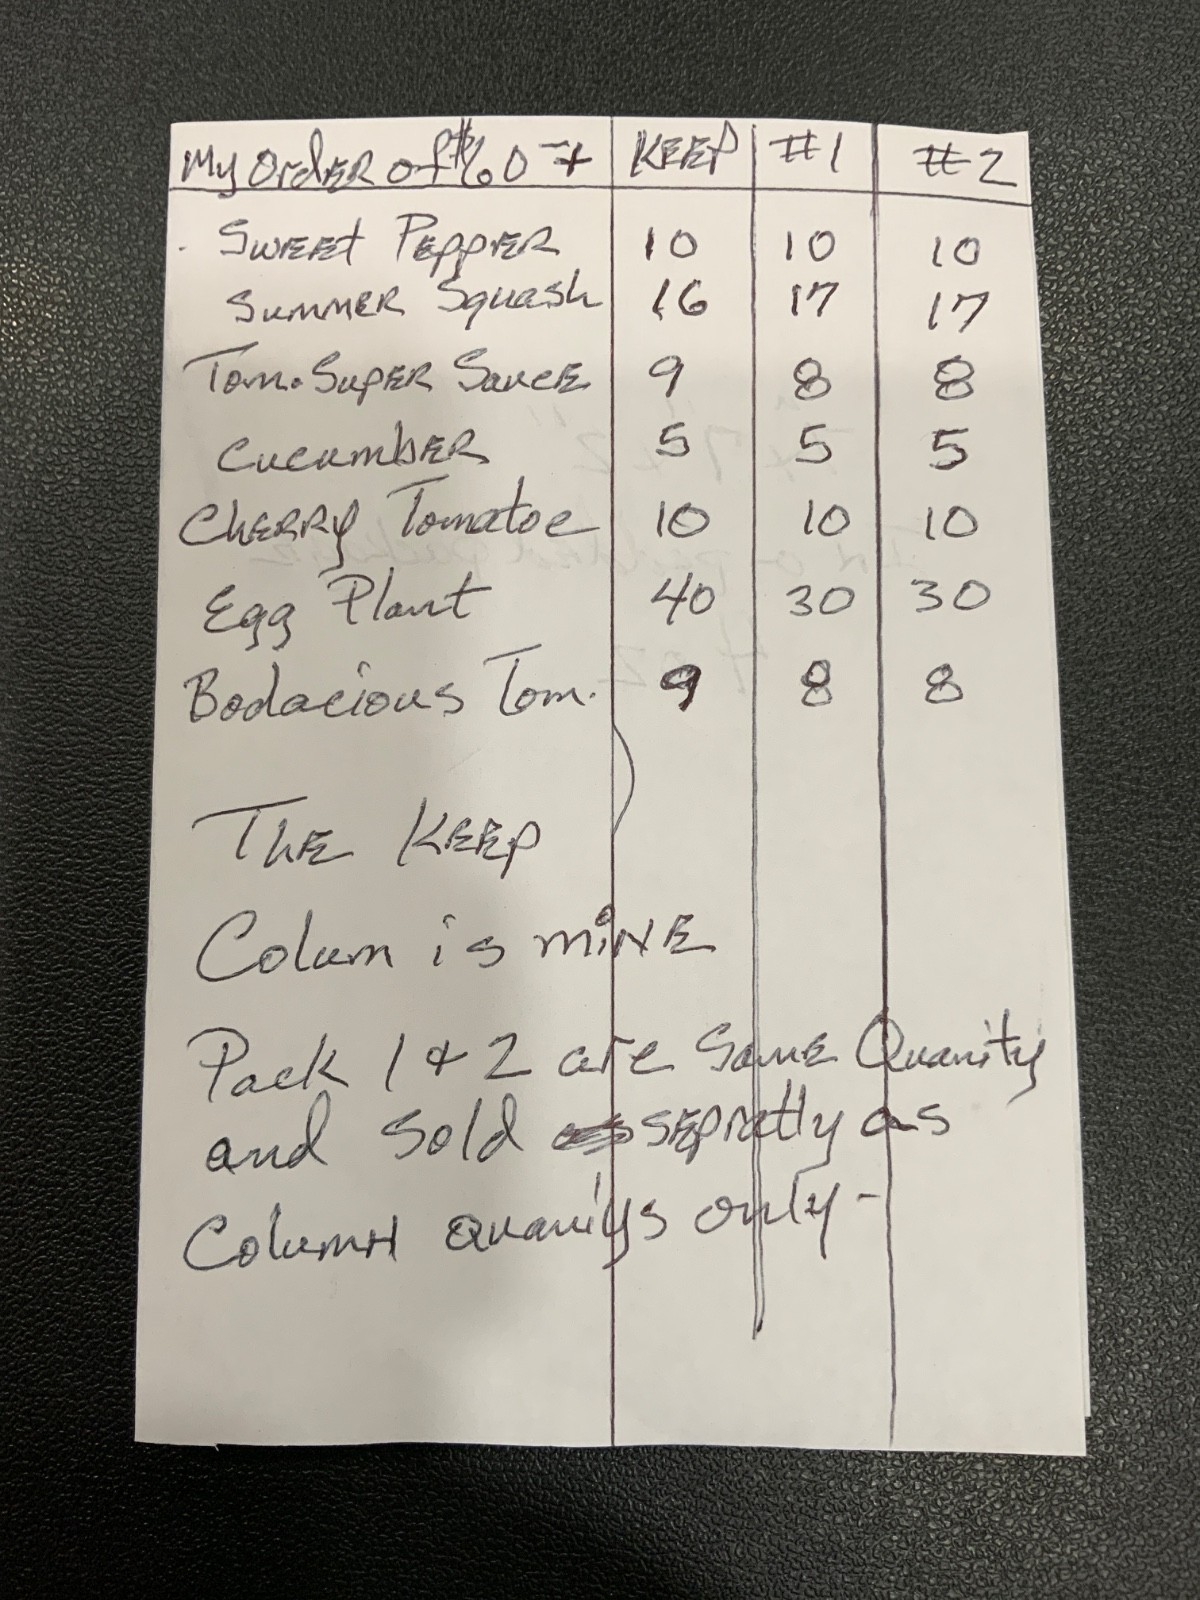 My Order of $60 -+ KEEP #1 #2
Sweet Pepper 10 10 10
Summer Squash 16 17 17
Tom. Super Sauce 9 8 8
Cucumber 5 5 5
Cherry Tomatoe 10 10 10
Egg Plant 40 30 30
Bodacious Tom. 9 8 8
The Keep
Colum is mine
Pack 1 & 2 are Same Quanity
and Sold sepratly as
Column quanitys only -